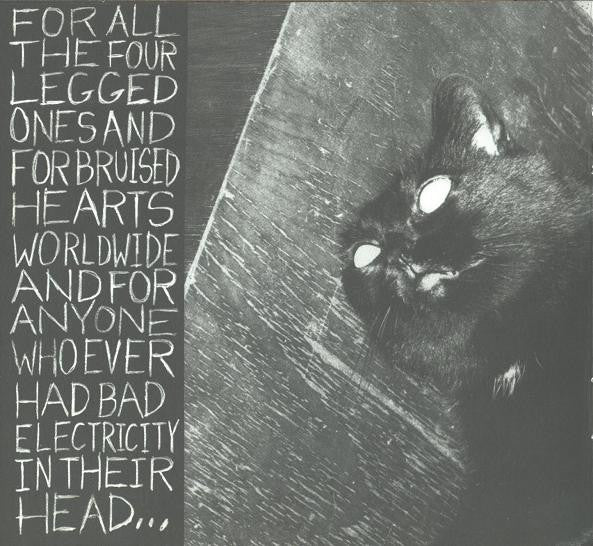 FOR ALL
THE FOUR
LEGGED
ONES AND
FOR BRUISED
HEARTS
WORLDWIDE
AND FOR
ANYONE
WHO EVER
HAD BAD
ELECTRICITY
IN THEIR
HEAD...